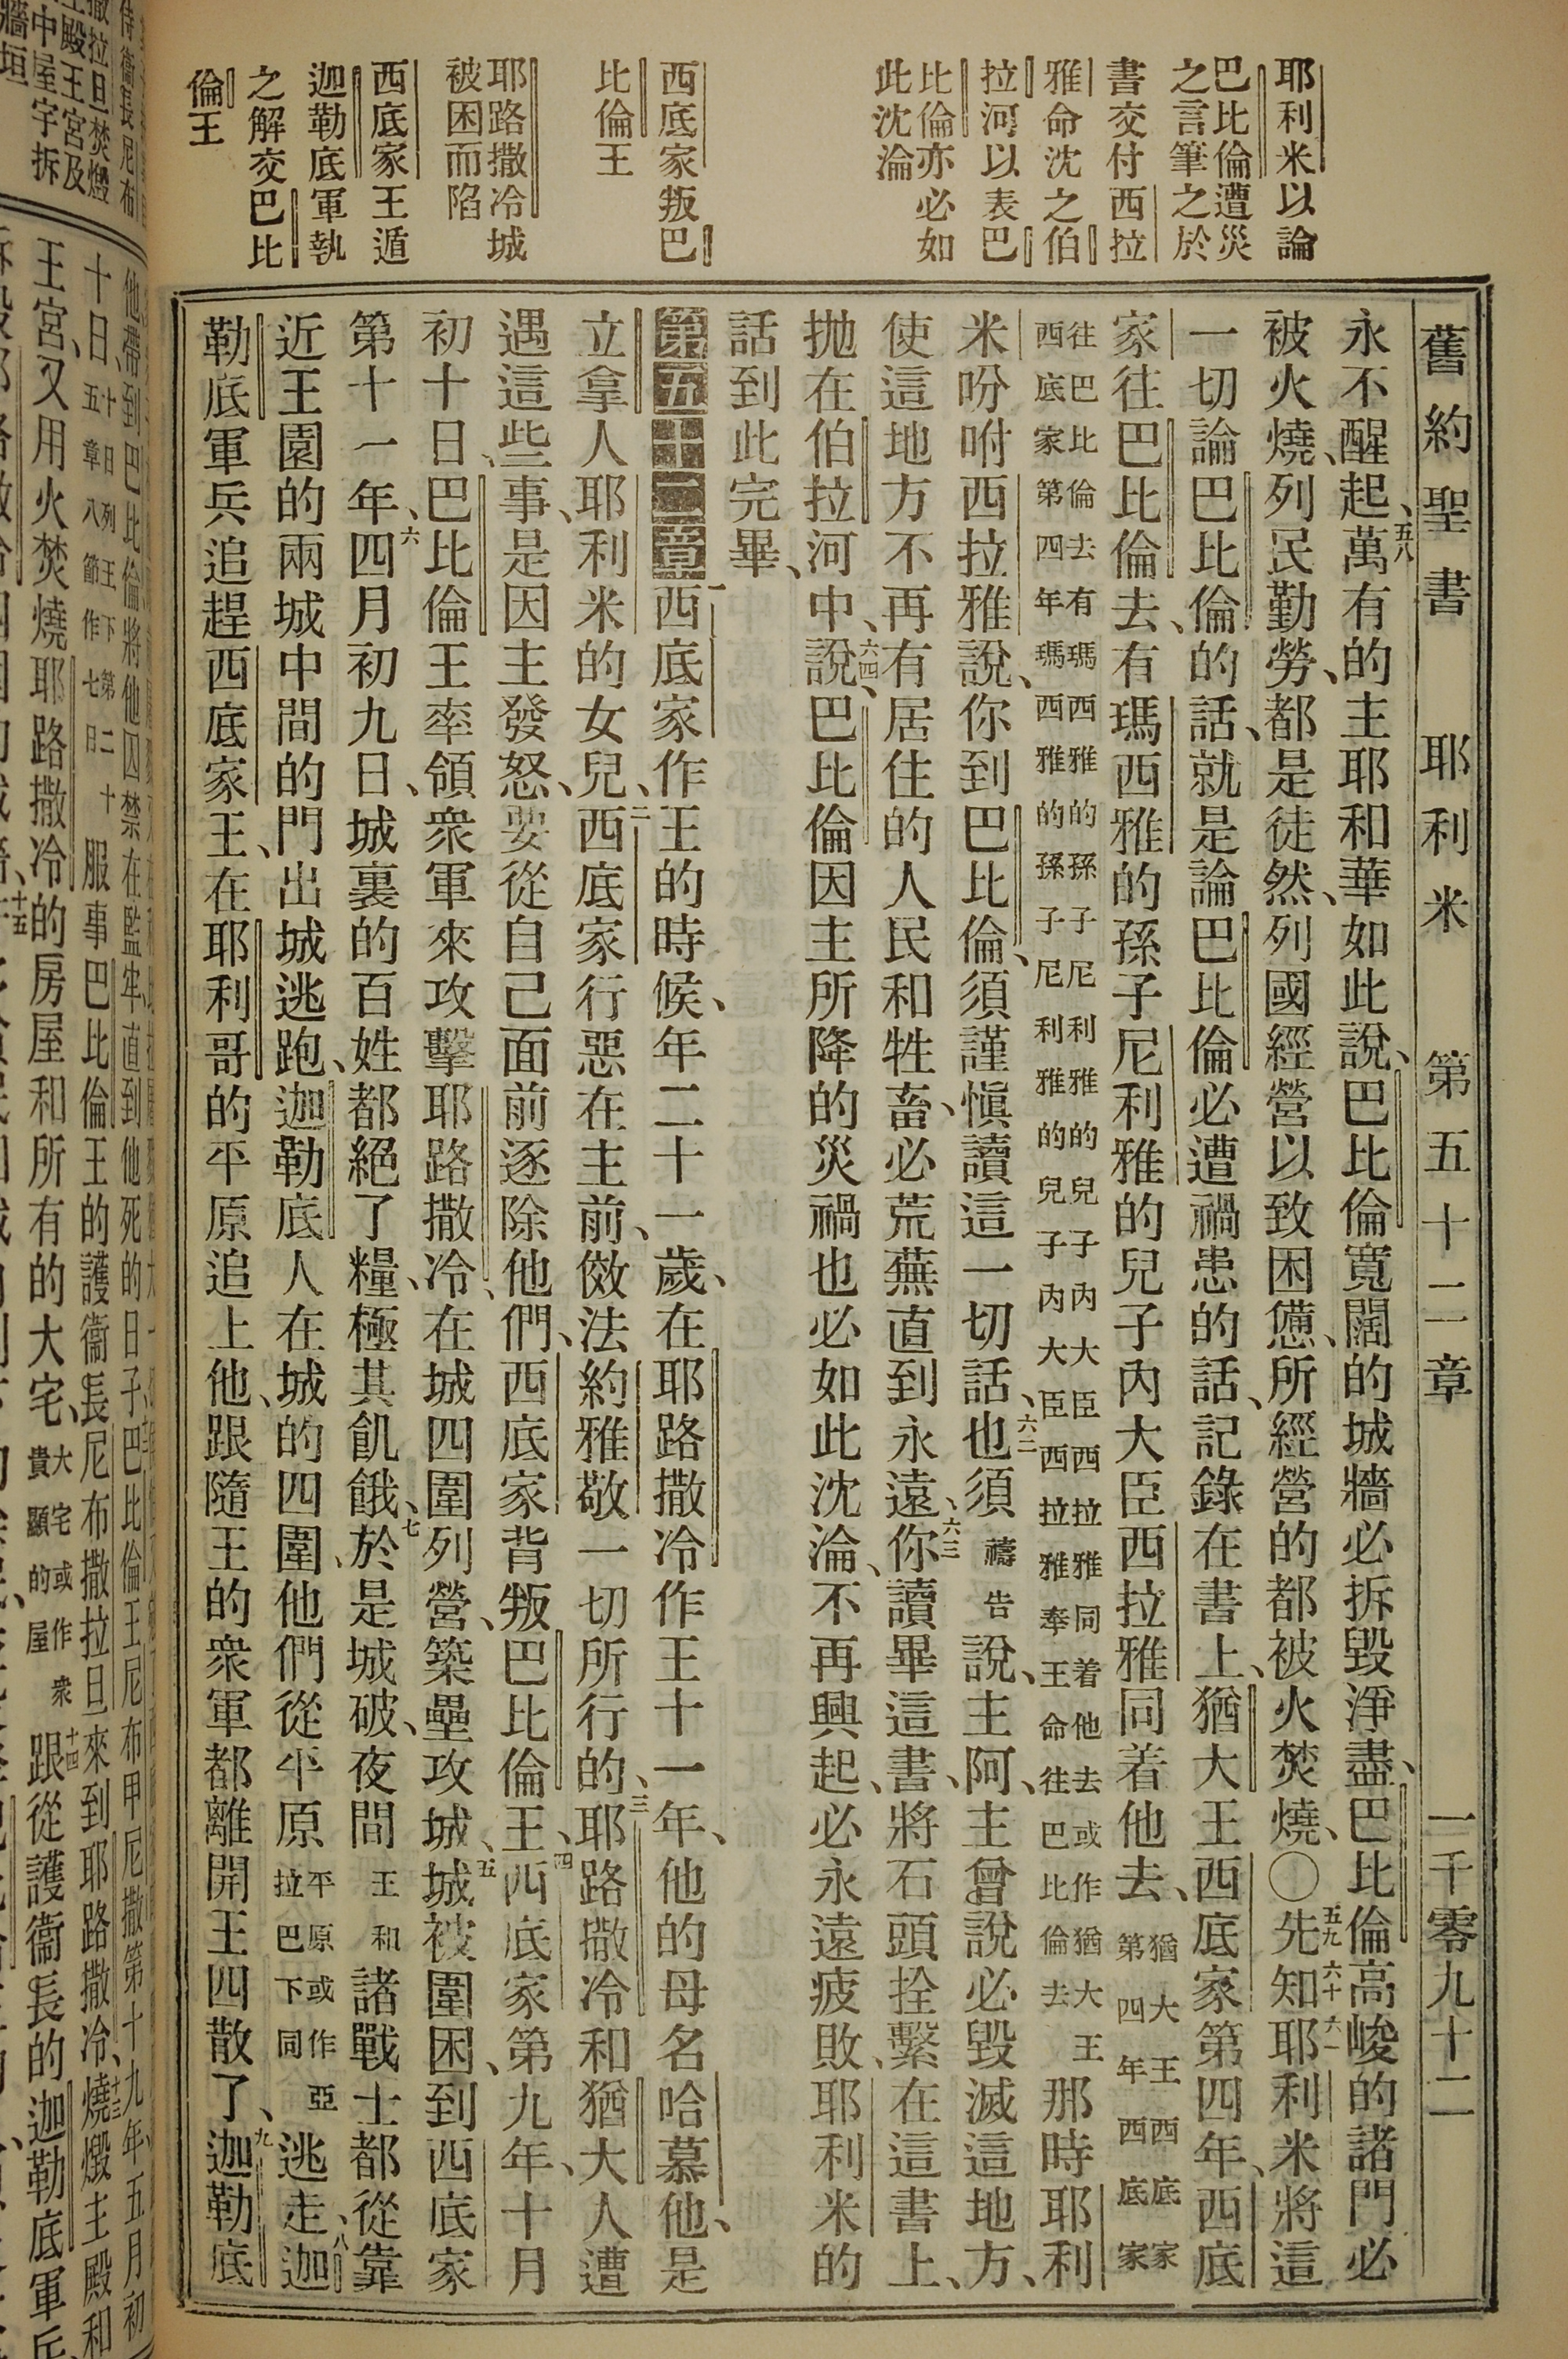 耶利米以論
巴比倫遭災
之言筆之於
書交付西拉
雅命沈之伯
拉河以表巴
比倫亦必如
此沈淪
西底家叛巴
比倫王
耶路撒冷城
被困而陷
西底家王遁
迦勒底軍執
之解交巴比
倫王
舊約聖書 耶利米 第五十二章 一千零九十二
永不醒起、五八萬有的主耶和華如此說、巴比倫寬闊的城牆必拆毀淨盡、巴比倫高峻的諸門必
被火燒、列民勤勞、都是徒然、列國經營以致困憊、所經營的都被火焚燒、〇五九先知六十六一耶利米將這
一切論巴比倫的話、就是論巴比倫必遭禍患的話、記錄在書上、猶大王西底家第四年、西底
家往巴比倫去、有瑪西雅的孫子尼利雅的兒子內大臣西拉雅同着他去、猶大王西底家第四年西底家
往巴比倫去有瑪西雅的孫子尼利雅的兒子內大臣西拉雅同着他去或作猶大王
西底家第四年瑪西雅的孫子尼利雅的兒子內大臣西拉雅奉王命往巴比倫去那時耶利
米吩咐西拉雅說、你到巴比倫、須謹愼讀這一切話、六二也須禱告說、主阿、主曾說必毀滅這地方、
使這地方不再有居住的人民和牲畜、必荒蕪直到永遠、六三你讀畢這書、將石頭拴繫在這書上、
拋在伯拉河中、六四說、巴比倫因主所降的災禍也必如此沈淪、不再興起、必永遠疲敗、耶利米的
話到此完畢、
第五十二章一西底家作王的時候、年二十一歲、在耶路撒冷作王十一年、他的母名哈慕他、是
立拿人耶利米的女兒、二西底家行惡在主前、傚法約雅敬一切所行的、三耶路撒冷和猶大人遭
遇這些事、是因主發怒、要從自己面前逐除他們、西底家背叛巴比倫王、四西底家第九年、十月
初十日、巴比倫王率領衆軍來攻擊耶路撒冷、在城四圍列營、築壘攻城、五城被圍困、到西底家
第十一年、六四月初九日、城裏的百姓都絕了糧、極其飢餓、七於是城破、夜間王和諸戰士都從靠
近王園的兩城中間的門出城逃跑、迦勒底人在城的四圍、他們從平原平原或作亞拉巴下同逃走、八迦
勒底軍兵追趕西底家王、在耶利哥的平原追上他、跟隨王的衆軍都離開王四散了、九迦勒底
他帶到巴比倫將他囚禁在監牢、直到他死的日子、巴比倫王尼布甲尼撒第十九年、五月初
十日十日列王下第二十五章八節作七日服事巴比倫王的護衞長尼布撒拉旦來到耶路撒冷、十三燒燬主殿和
王宮、又用火焚燒耶路撒冷的房屋和所有的大宅、大宅或作衆貴顯的屋十四跟從護衞長的迦勒底軍兵